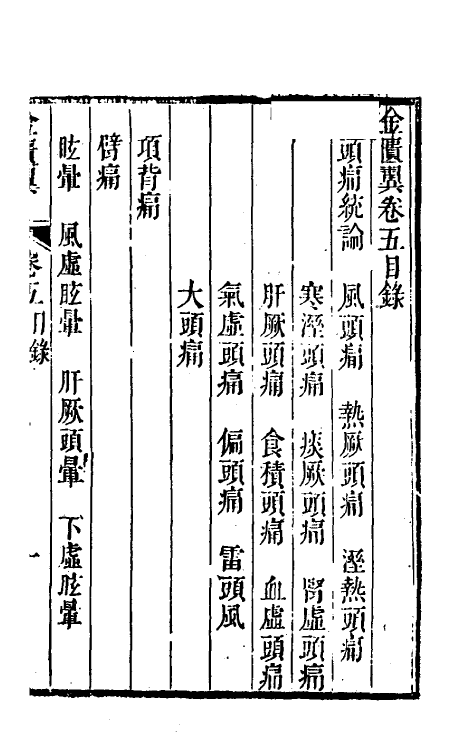 金匱翼卷五目錄
頭痛統論 風頭痛 熱厥頭痛 溼熱頭痛
寒溼頭痛 痰厥頭痛 腎虛頭痛
肝厥頭痛 食積頭痛 血虛頭痛
氣虛頭痛 偏頭痛 雷頭風
大頭痛
項背痛
臂痛
眩暈 風虛眩暈 肝厥頭暈 下虛眩暈
金匱翼 卷五目錄 一